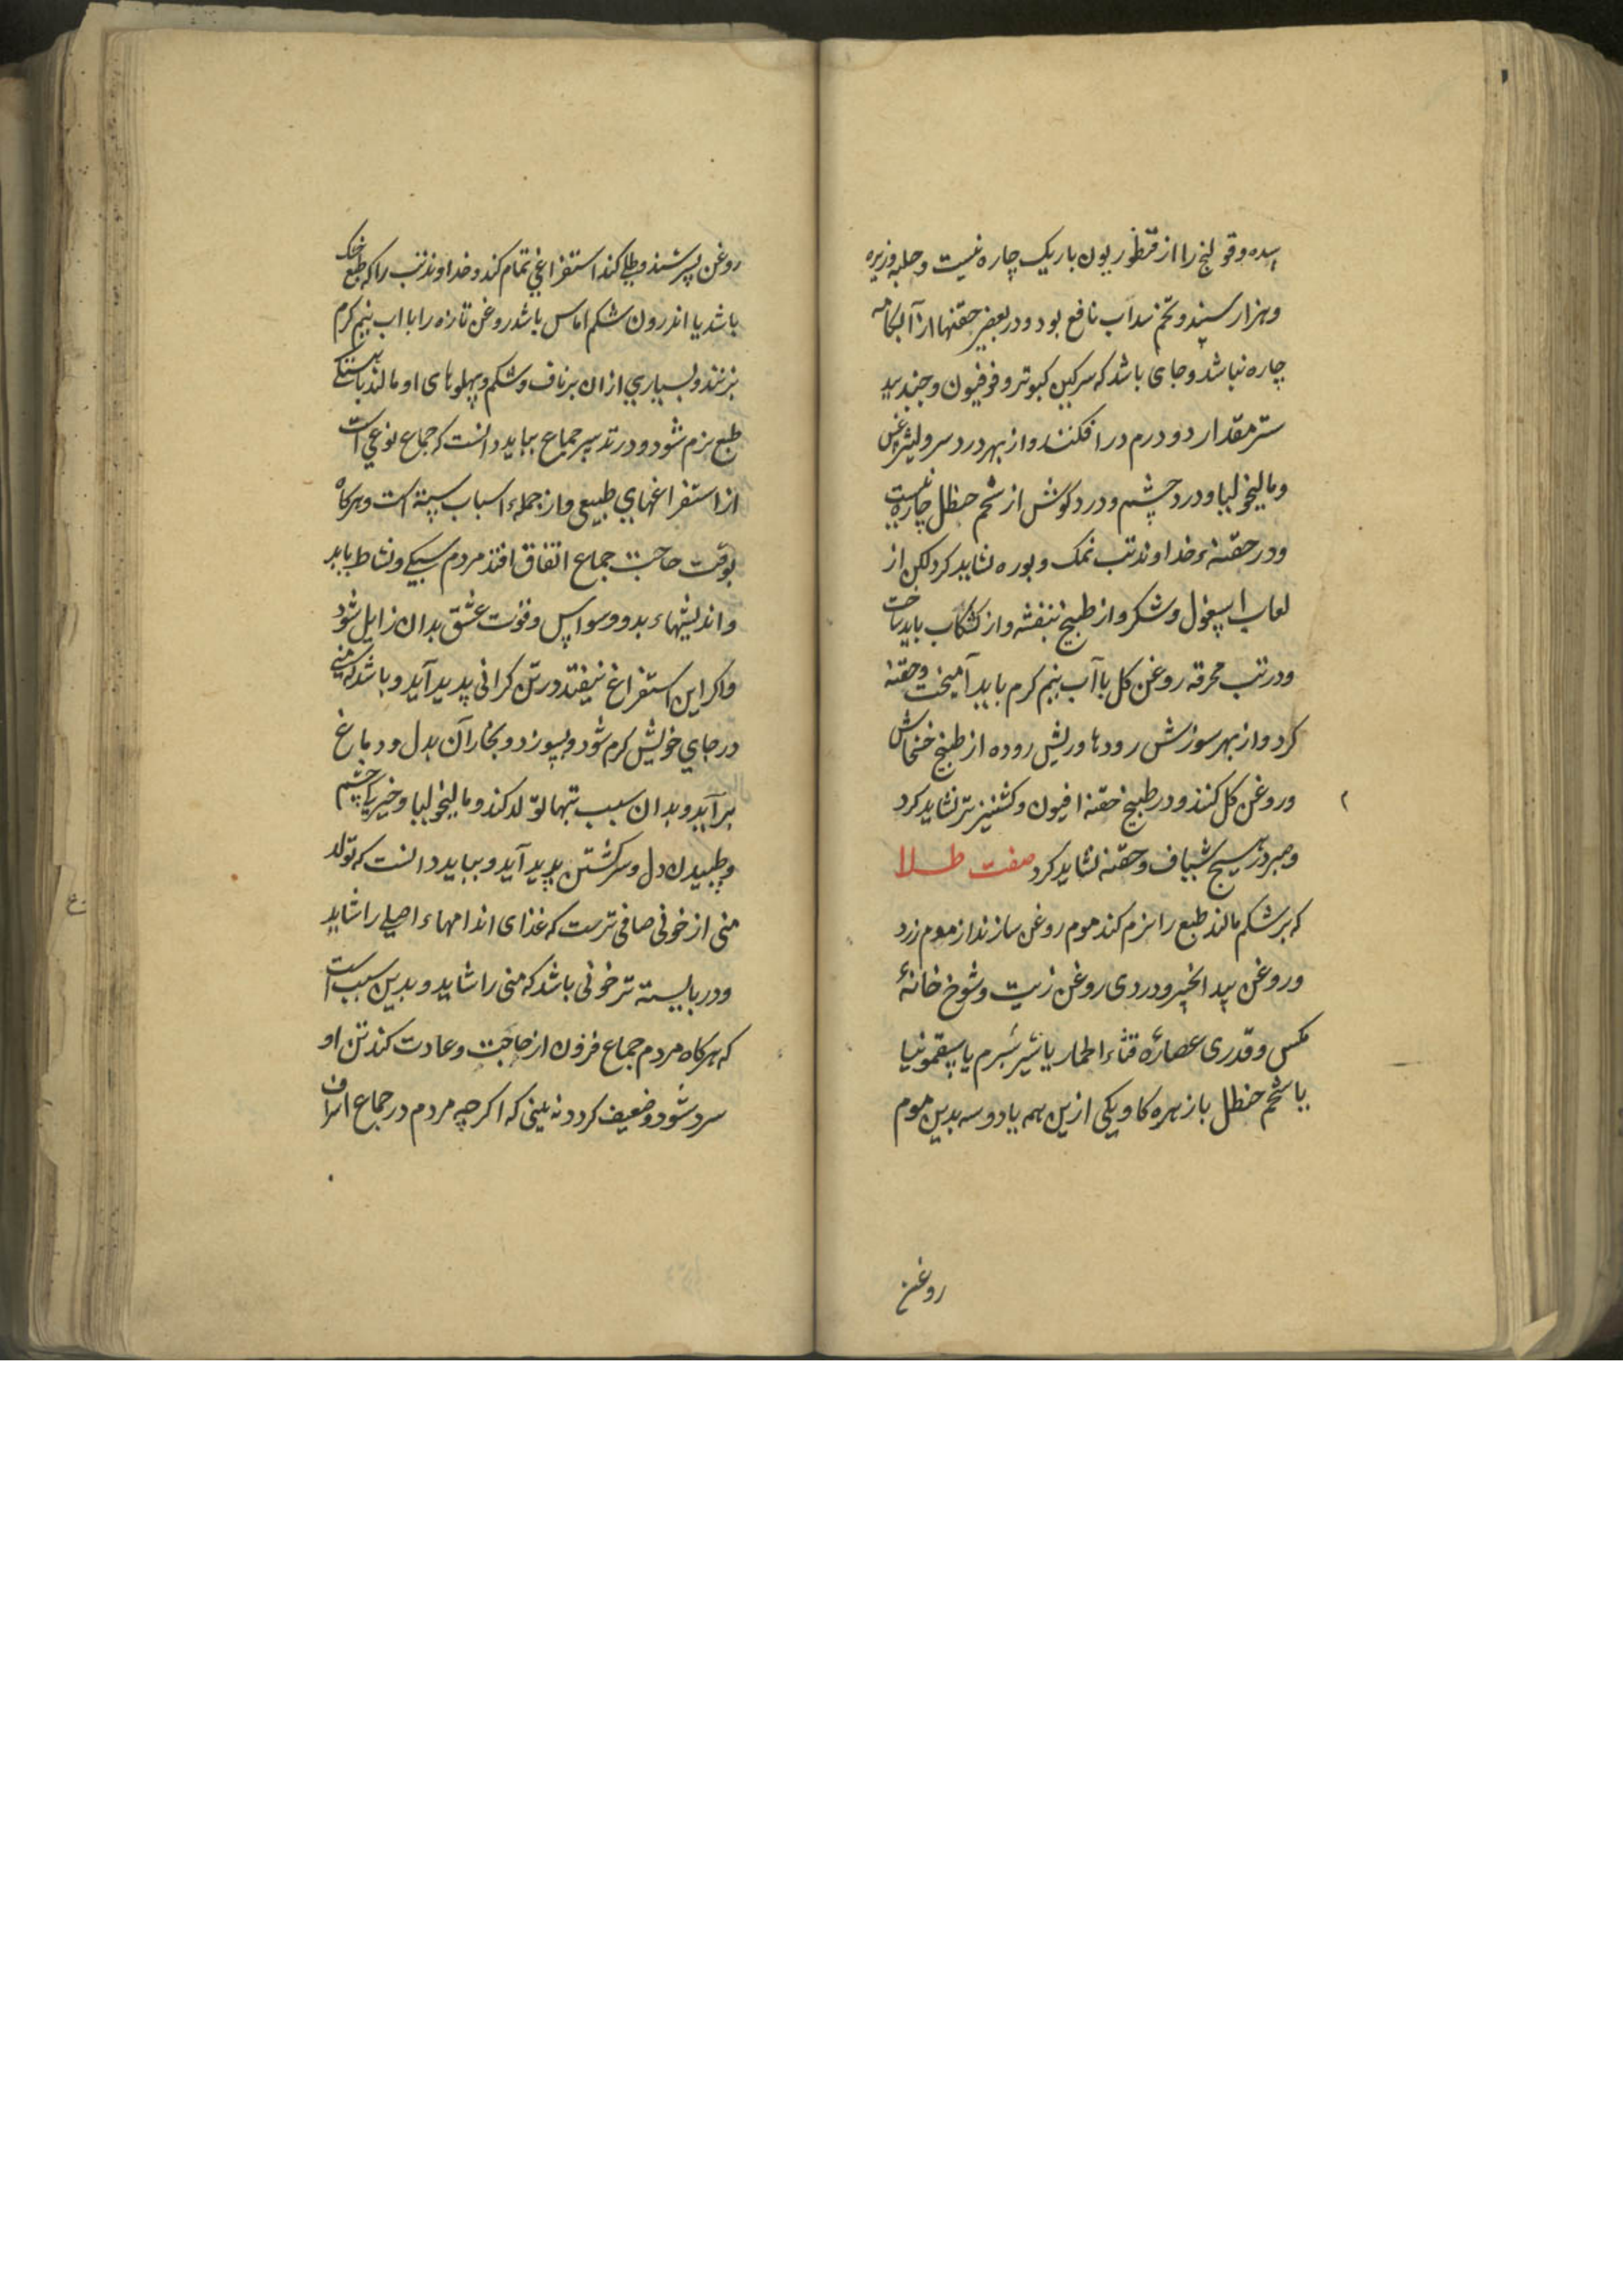 سده و قولنج را از قنطوریون باریک چاره نیست و حلبه و زیره
و هزار سپند و تخم سداب نافع بود و در بعضی حقنها از آبکامه
چاره نباشد و جای باشد که سرکین کبوتر و فرفیون و جند بید
ستر مقدار دو درم در افکنند و از بهر درد سر و لیثرغس
و مالیخولیا و درد چشم و درد کوش از شحم حنظل چاره نیست
و در حقنهٔ خداوند تب نمک و بوره نشاید کرد لکن از
لعاب اسپغول و شکر و از طبیخ بنفشه و از کشکاب باید ساخت
و در تب محرقه روغن کل با آب نیم کرم باید آمیخت و حقنه
کرد و از بهر سوزش رودها و ریش روده از طبیخ خشخاش
و روغن کل کنند و در طبیخ حقنه افیون و کشنیز تر نشاید کرد
و صبر در هیچ شیاف و حقنه نشاید کرد صفت طلا
که بر شکم مالند طبع را نرم کند موم روغن سازند از موم زرد
و روغن بید انجیر و دردی روغن زیت و شوخ خانهٔ
مکس و قدری عصارهٔ قثاء الحمار یا شیر شبرم یا سقمونیا
یا شحم حنظل یا زهره کاو یکی ازین همه یا دو سه بدین موم
روغن
روغن بسرشند و طلی کنند استفراغی تمام کند و خداوند تب را که طبع خشک
باشد یا اندرون شکم اماس باشد روغن تازه را با اب نیم کرم
بزنند و بسیاری ازان بر ناف و شکم و پهلوهای او مالند بآهستکی
طبع نرم شود و در تدبیر جماع بباید دانست که جماع نوعی است
از استفراغهای طبیعی و از جملهء اسباب ستّه است و هرکاه
بوقت حاجت جماع اتفاق افتد مردم سبکی و نشاط یابد
و اندیشهاء بد و وسواس و قوت عشق بدان زایل شود
و اکر این استفراغ نیفتد در تن کرانی پدید آید و باشد که منی
در جای خویش کرم شود و بسوزد و بخار آن بدل و دماغ
برآید و بدان سبب تبها تولد کند و مالیخولیا و خیرکی چشم
و طپیدن دل و سر کشتن پدید آید و بباید دانست که تولد
منی از خونی صافی ترست که غذای اندامهاء اصلی را شاید
و دربایسته تر خونی باشد که منی را شاید و بدین سبب است
که هرکاه مردم جماع فزون از حاجت و عادت کند تن او
سرد شود و ضعیف کردد نه بینی که اکر چه مردم در جماع اسراف